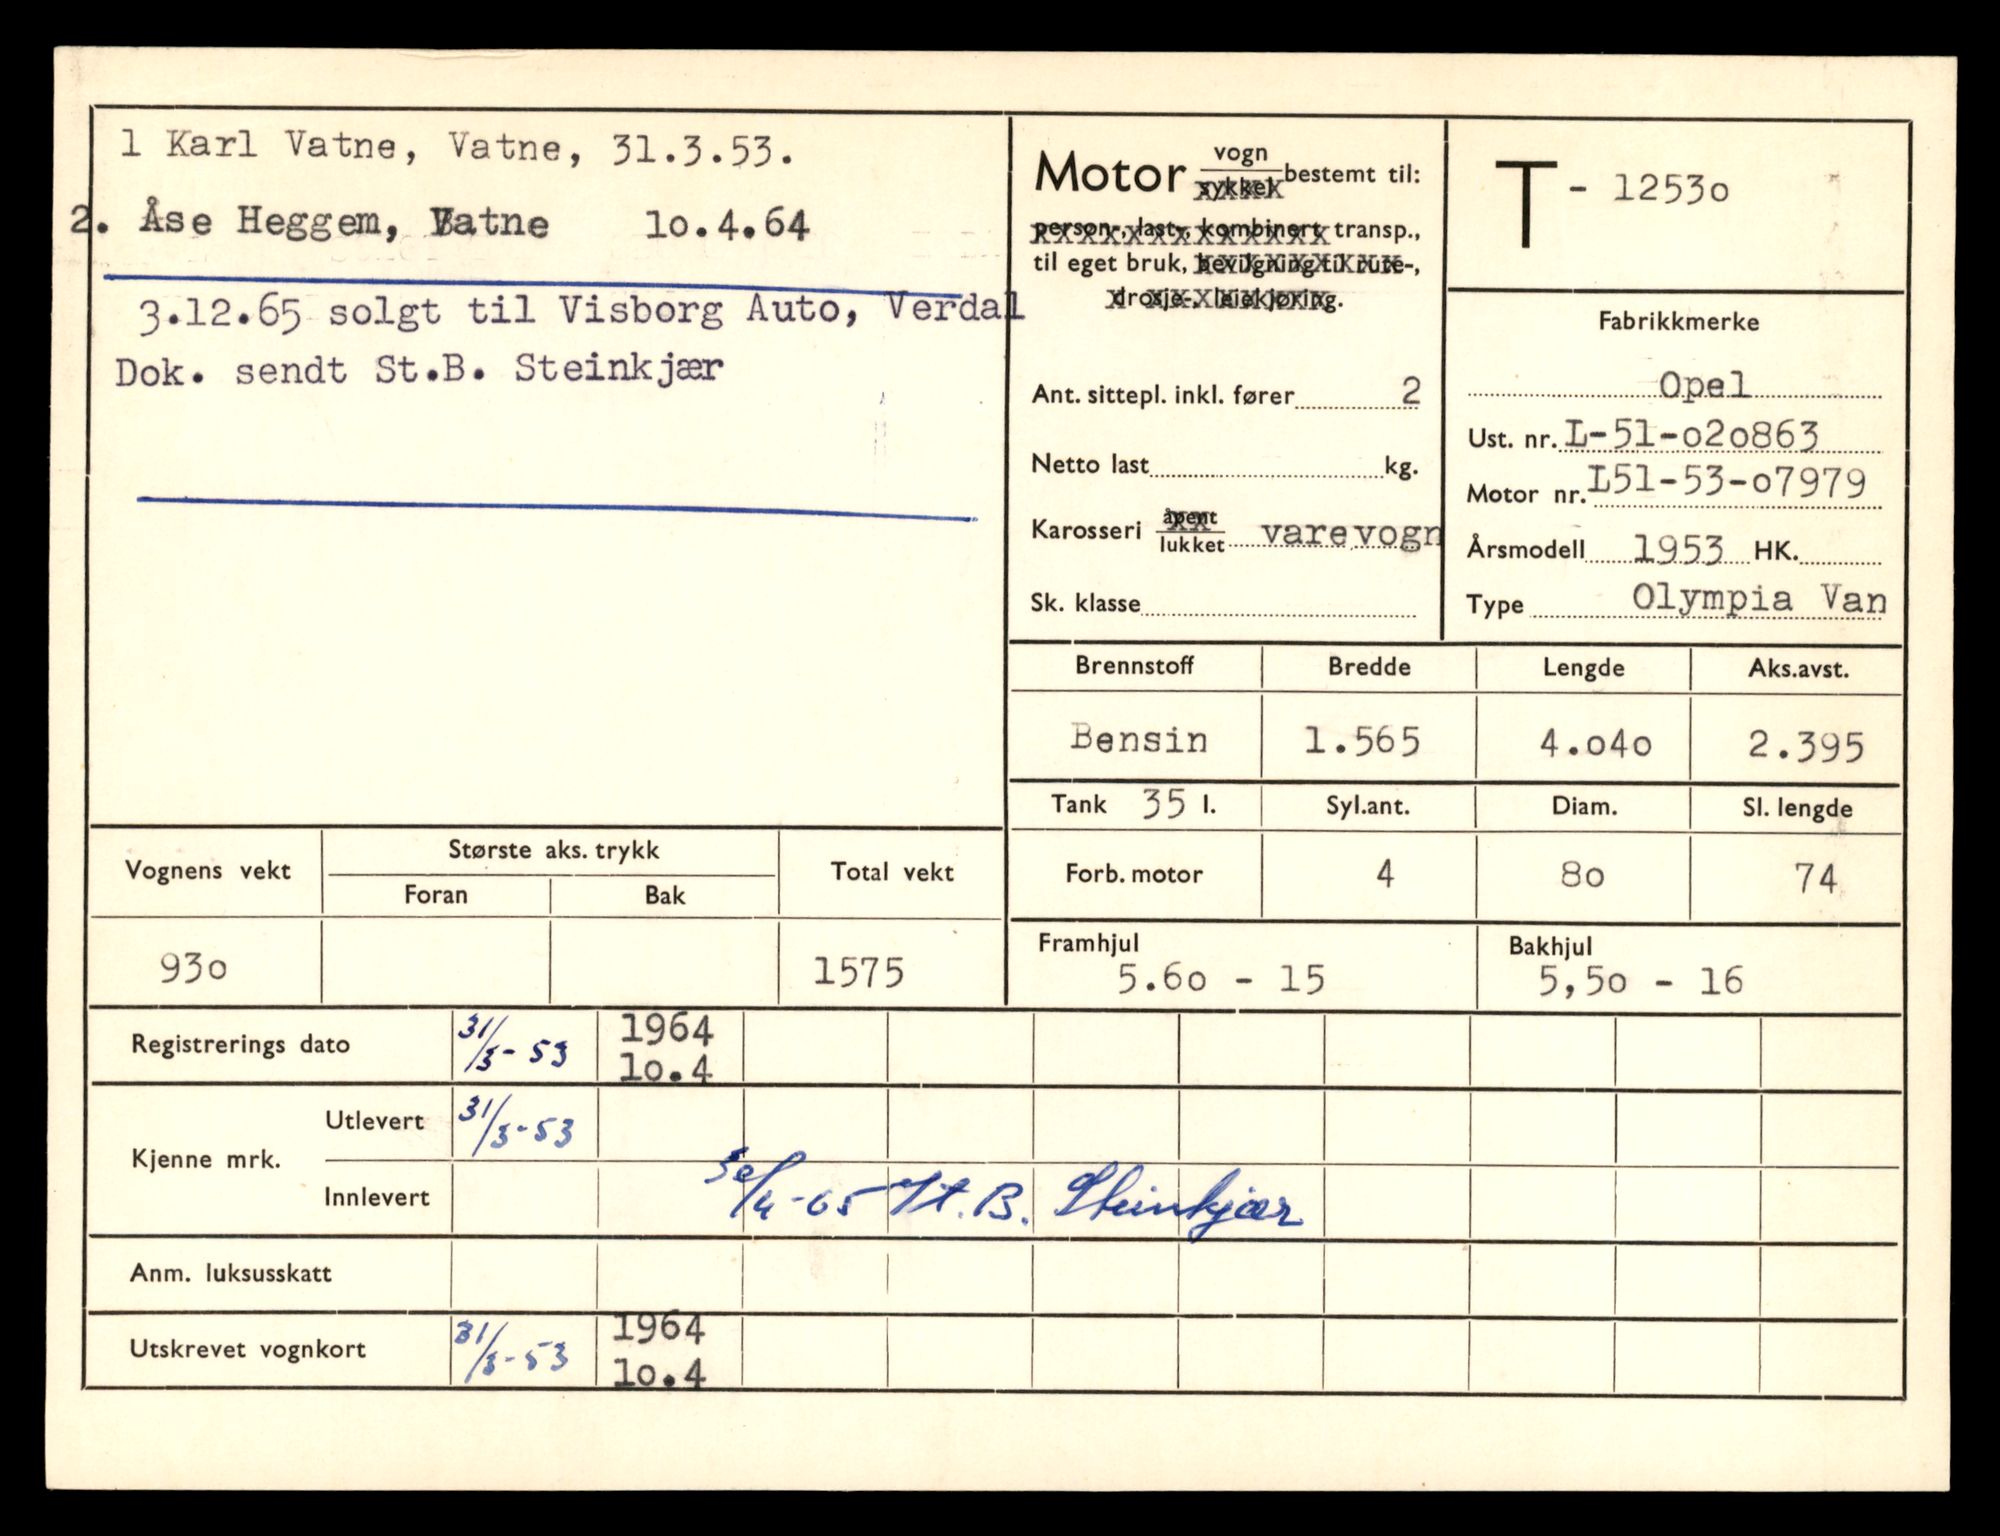 1 Karl Vatne, Vatne, 31.3.53.
2. Åse Heggem, Vatne 10.4.64
3.12.65 solgt til Visborg Auto, Verdal
Dok. sendt St.B. Steinkjær
Motor vogn sykkel bestemt til:
person-, last-, kombinert transp.,
til eget bruk, bevilgning til rute-,
drosje-, leiekjøring.
Ant. sittepl. inkl. fører 2
Netto last kg.
Karosseri åpent lukket varevogn
Sk. klasse
T - 12530
Fabrikkmerke
Opel
Ust. nr. L-51-020863
Motor nr. L51-53-07979
Årsmodell 1953 HK.
Type Olympia Van
Brennstoff Bredde Lengde Aks.avst.
Bensin 1.565 4.040 2.395
Tank 35 l. Syl.ant. Diam. Sl. lengde
Forb. motor 4 80 74
Framhjul Bakhjul
5.60 - 15 5,50 - 16
Vognens vekt Største aks. trykk Total vekt
Foran Bak
930 1575
Registrerings dato 31/3-53 1964 10.4
Kjenne mrk. Utlevert 31/3-53
Innlevert 30/4-65 St. B. Steinkjær
Anm. luksusskatt
Utskrevet vognkort 31/3-53 1964 10.4